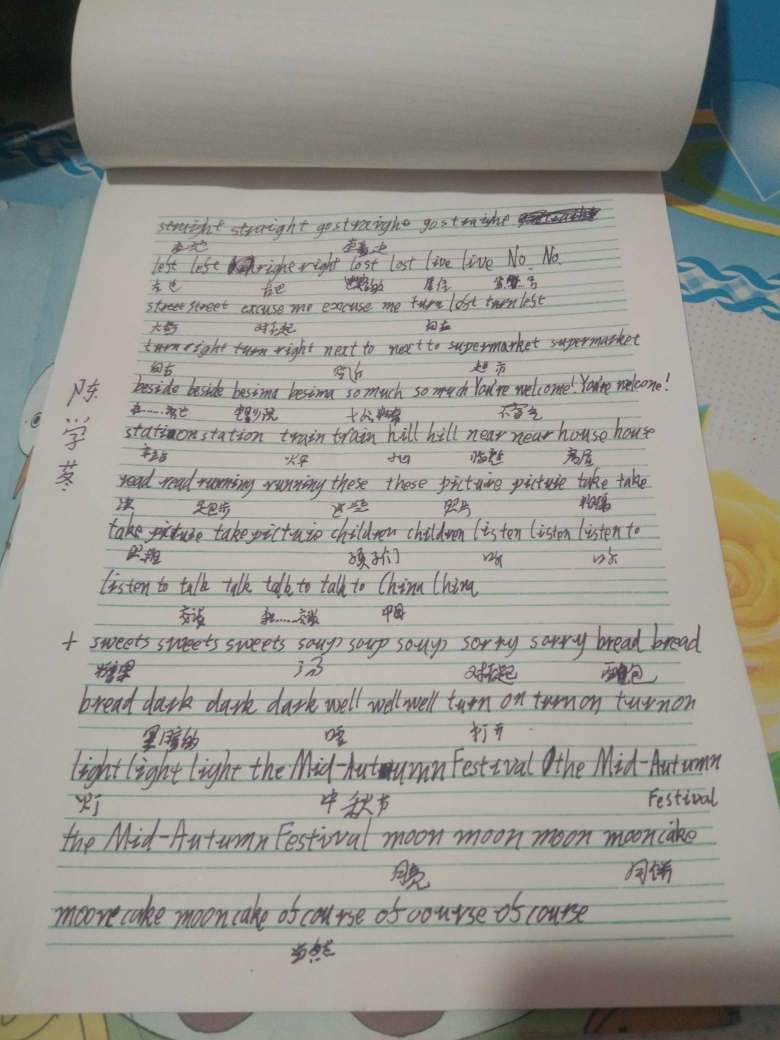 straight straight go straight go straight
left left right right lost lost live live No. No.
左边 右边 居住
street street excuse me excuse me turn left turn left
大街 对不起 向左
turn right turn right next to next to supermarket supermarket
向右 旁边 超市
陈学苳
beside beside besima besima so much so much You're welcome! You're welcome!
不客气
station station train train hill hill near near house house
车站 火车 小山 房屋
read read running running these these picture picture take take
读 跑步 这些 照片
take picture take picture children children listen listen listen to
照相 孩子们 听 听
listen to talk talk talk to talk to China China
交谈 和……交谈 中国
+ sweets sweets sweets soup soup soup sorry sorry bread bread
糖果 汤 对不起 面包
bread dark dark dark well well well turn on turn on turn on
黑暗的 嗯 打开
light light light the Mid-Autumn Festival the Mid-Autumn
灯 中秋节 Festival
the Mid-Autumn Festival moon moon moon mooncake
月亮 月饼
mooncake mooncake of course of course of course
当然